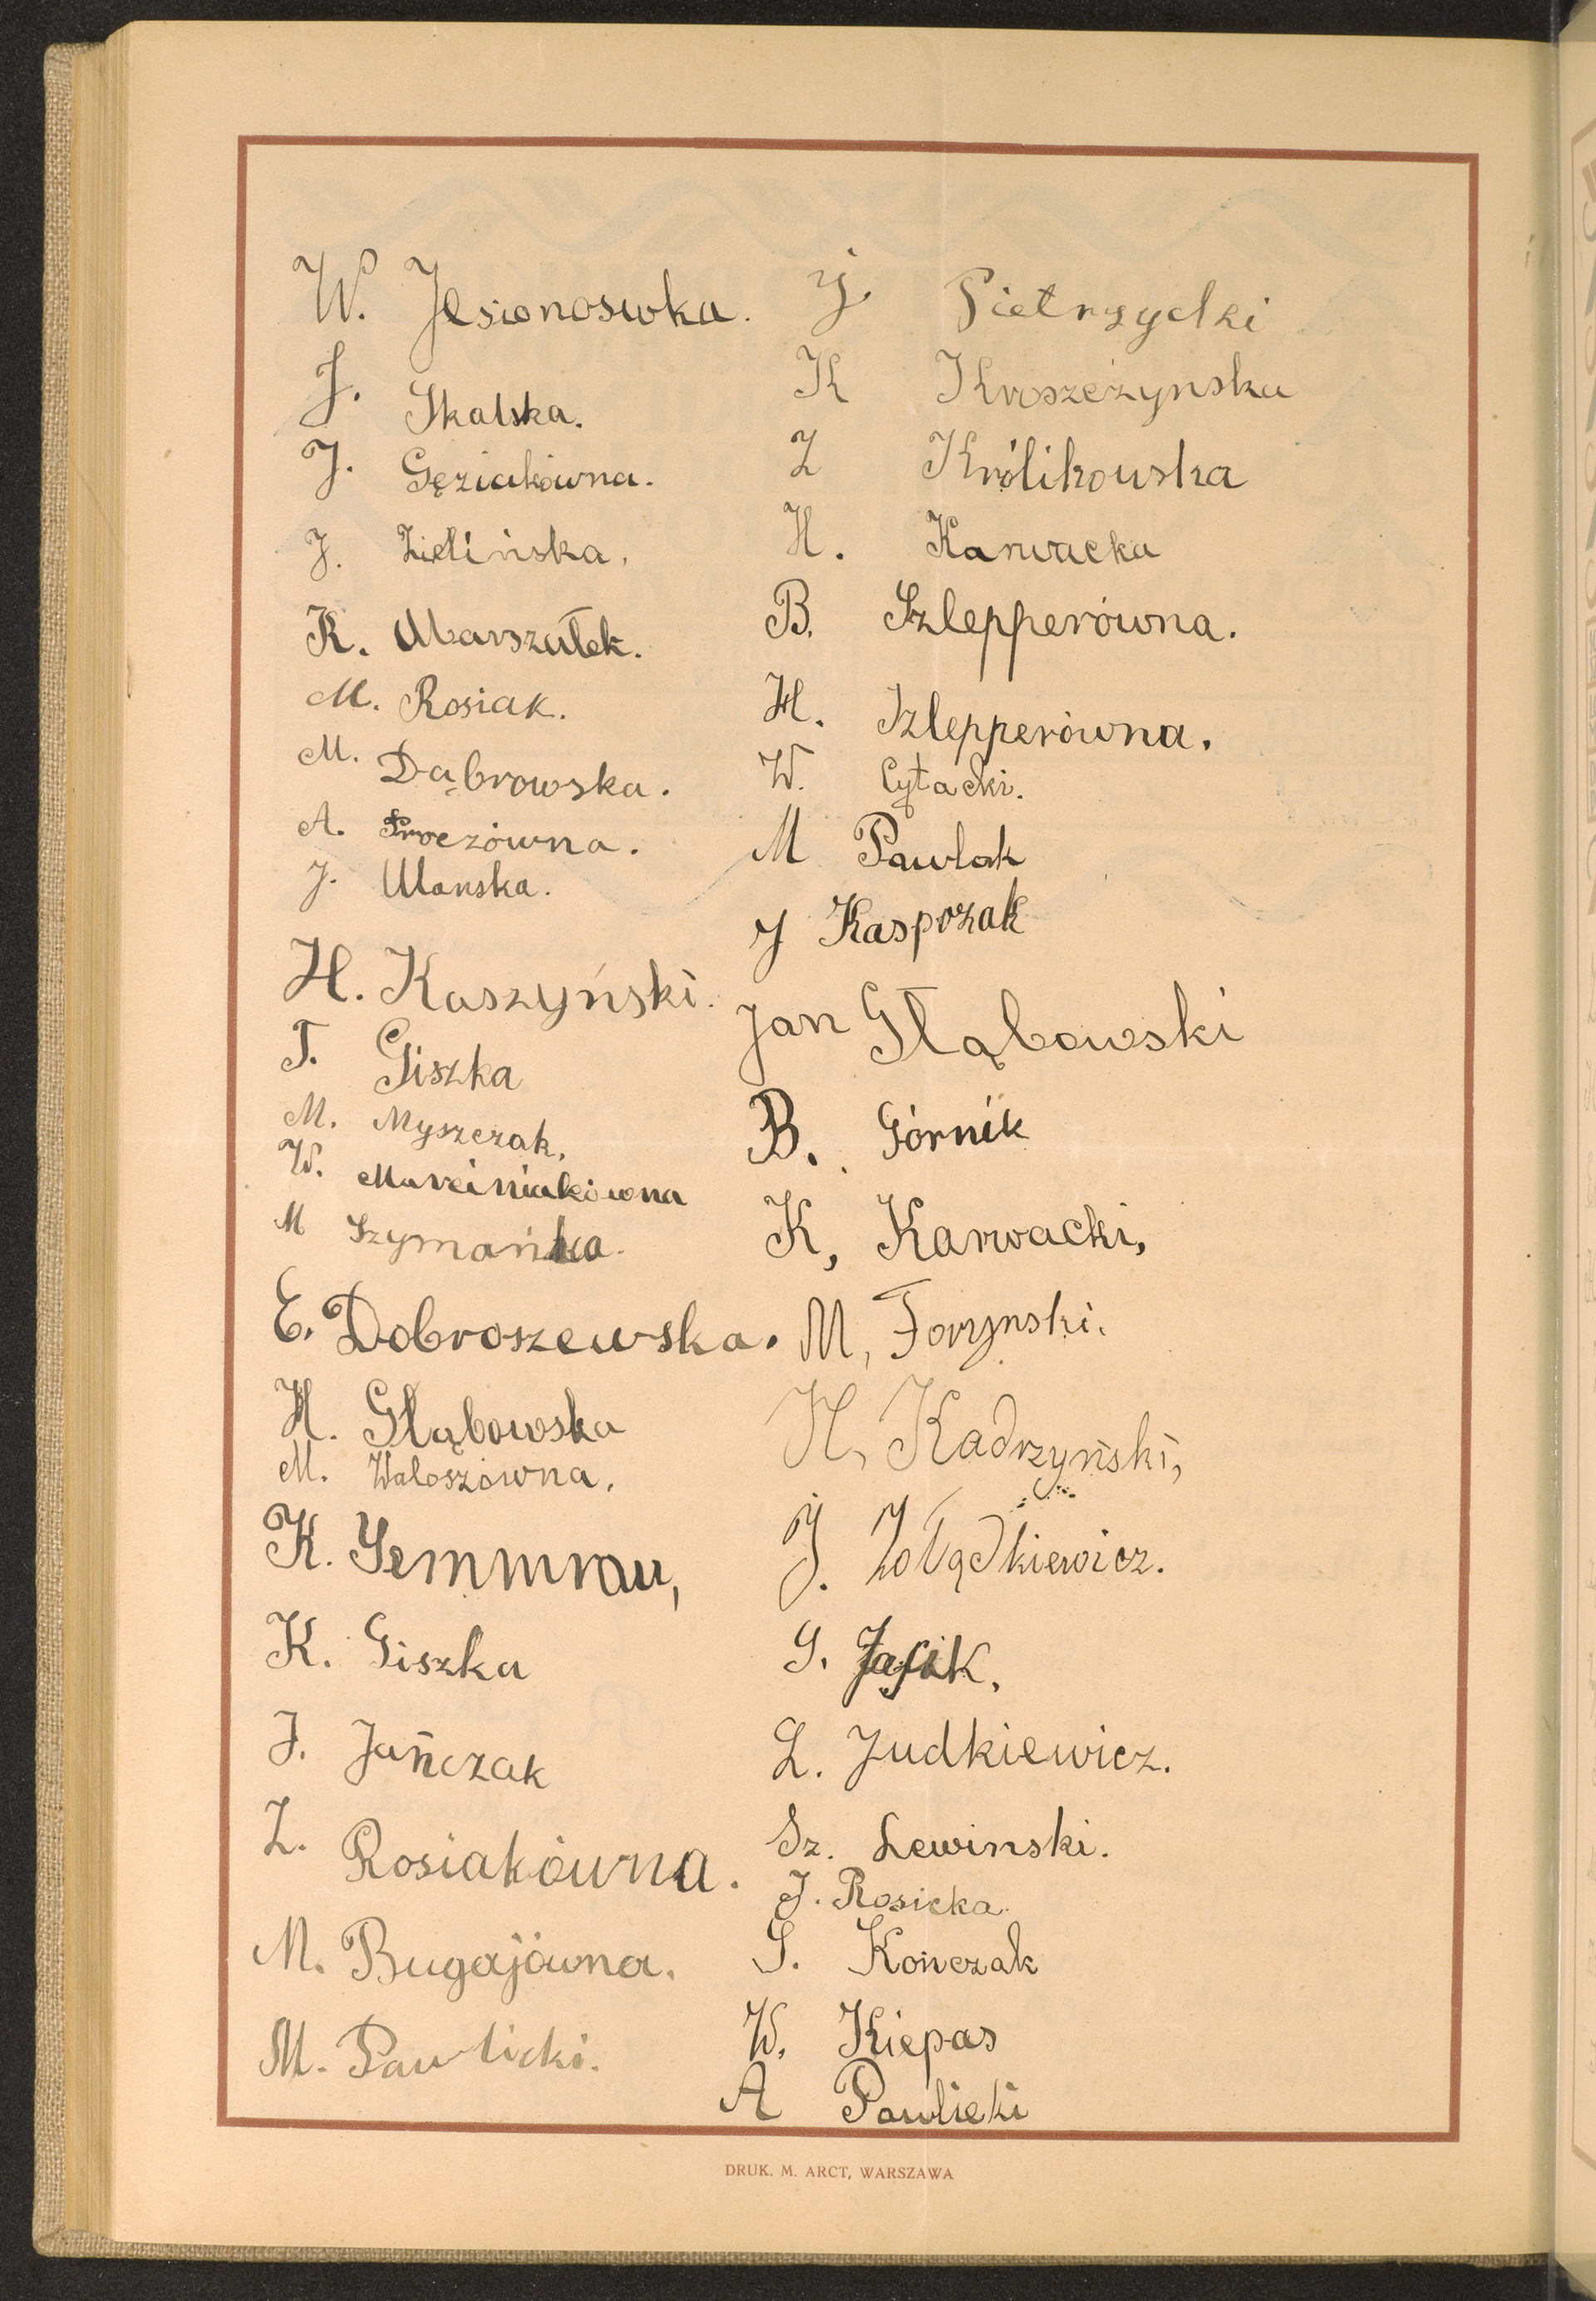 W. Jesionowska.
J. Skalska.
J. Gęziakówna.
J. Zielińska.
K. Marszałek.
M. Rosiak.
M. Dąbrowska.
A. Proczówna.
J. Ulanska.
H. Kaszyński.
T. Giszka
M. Myszczak,
W. Marciniakówna
M Szymańka.
E. Dobroszewska.
H. Głąbowska
M. Waloszówna.
K. Semmrau,
K. Giszka
J. Jańczak
Z. Rosiakówna.
M. Bugajówna.
M. Pawlicki.
J. Pietrzycki
K Kroszczynska
Z Królikowska
H. Karwacka
B. Szlepperówna.
H. Szlepperówna.
W. Cytacki.
M Pawlak
J Kasprzak
Jan Głąbowski
B. Górnik
K, Karwacki,
M, Forynski.
H, Kadrzyński,
J. Żołądkiewicz.
G. Jasik,
L. Judkiewicz.
Sz. Lewinski.
J. Rosicka.
S. Kończak
W. Kiepas
A Pawlicki
DRUK. M. ARCT, WARSZAWA